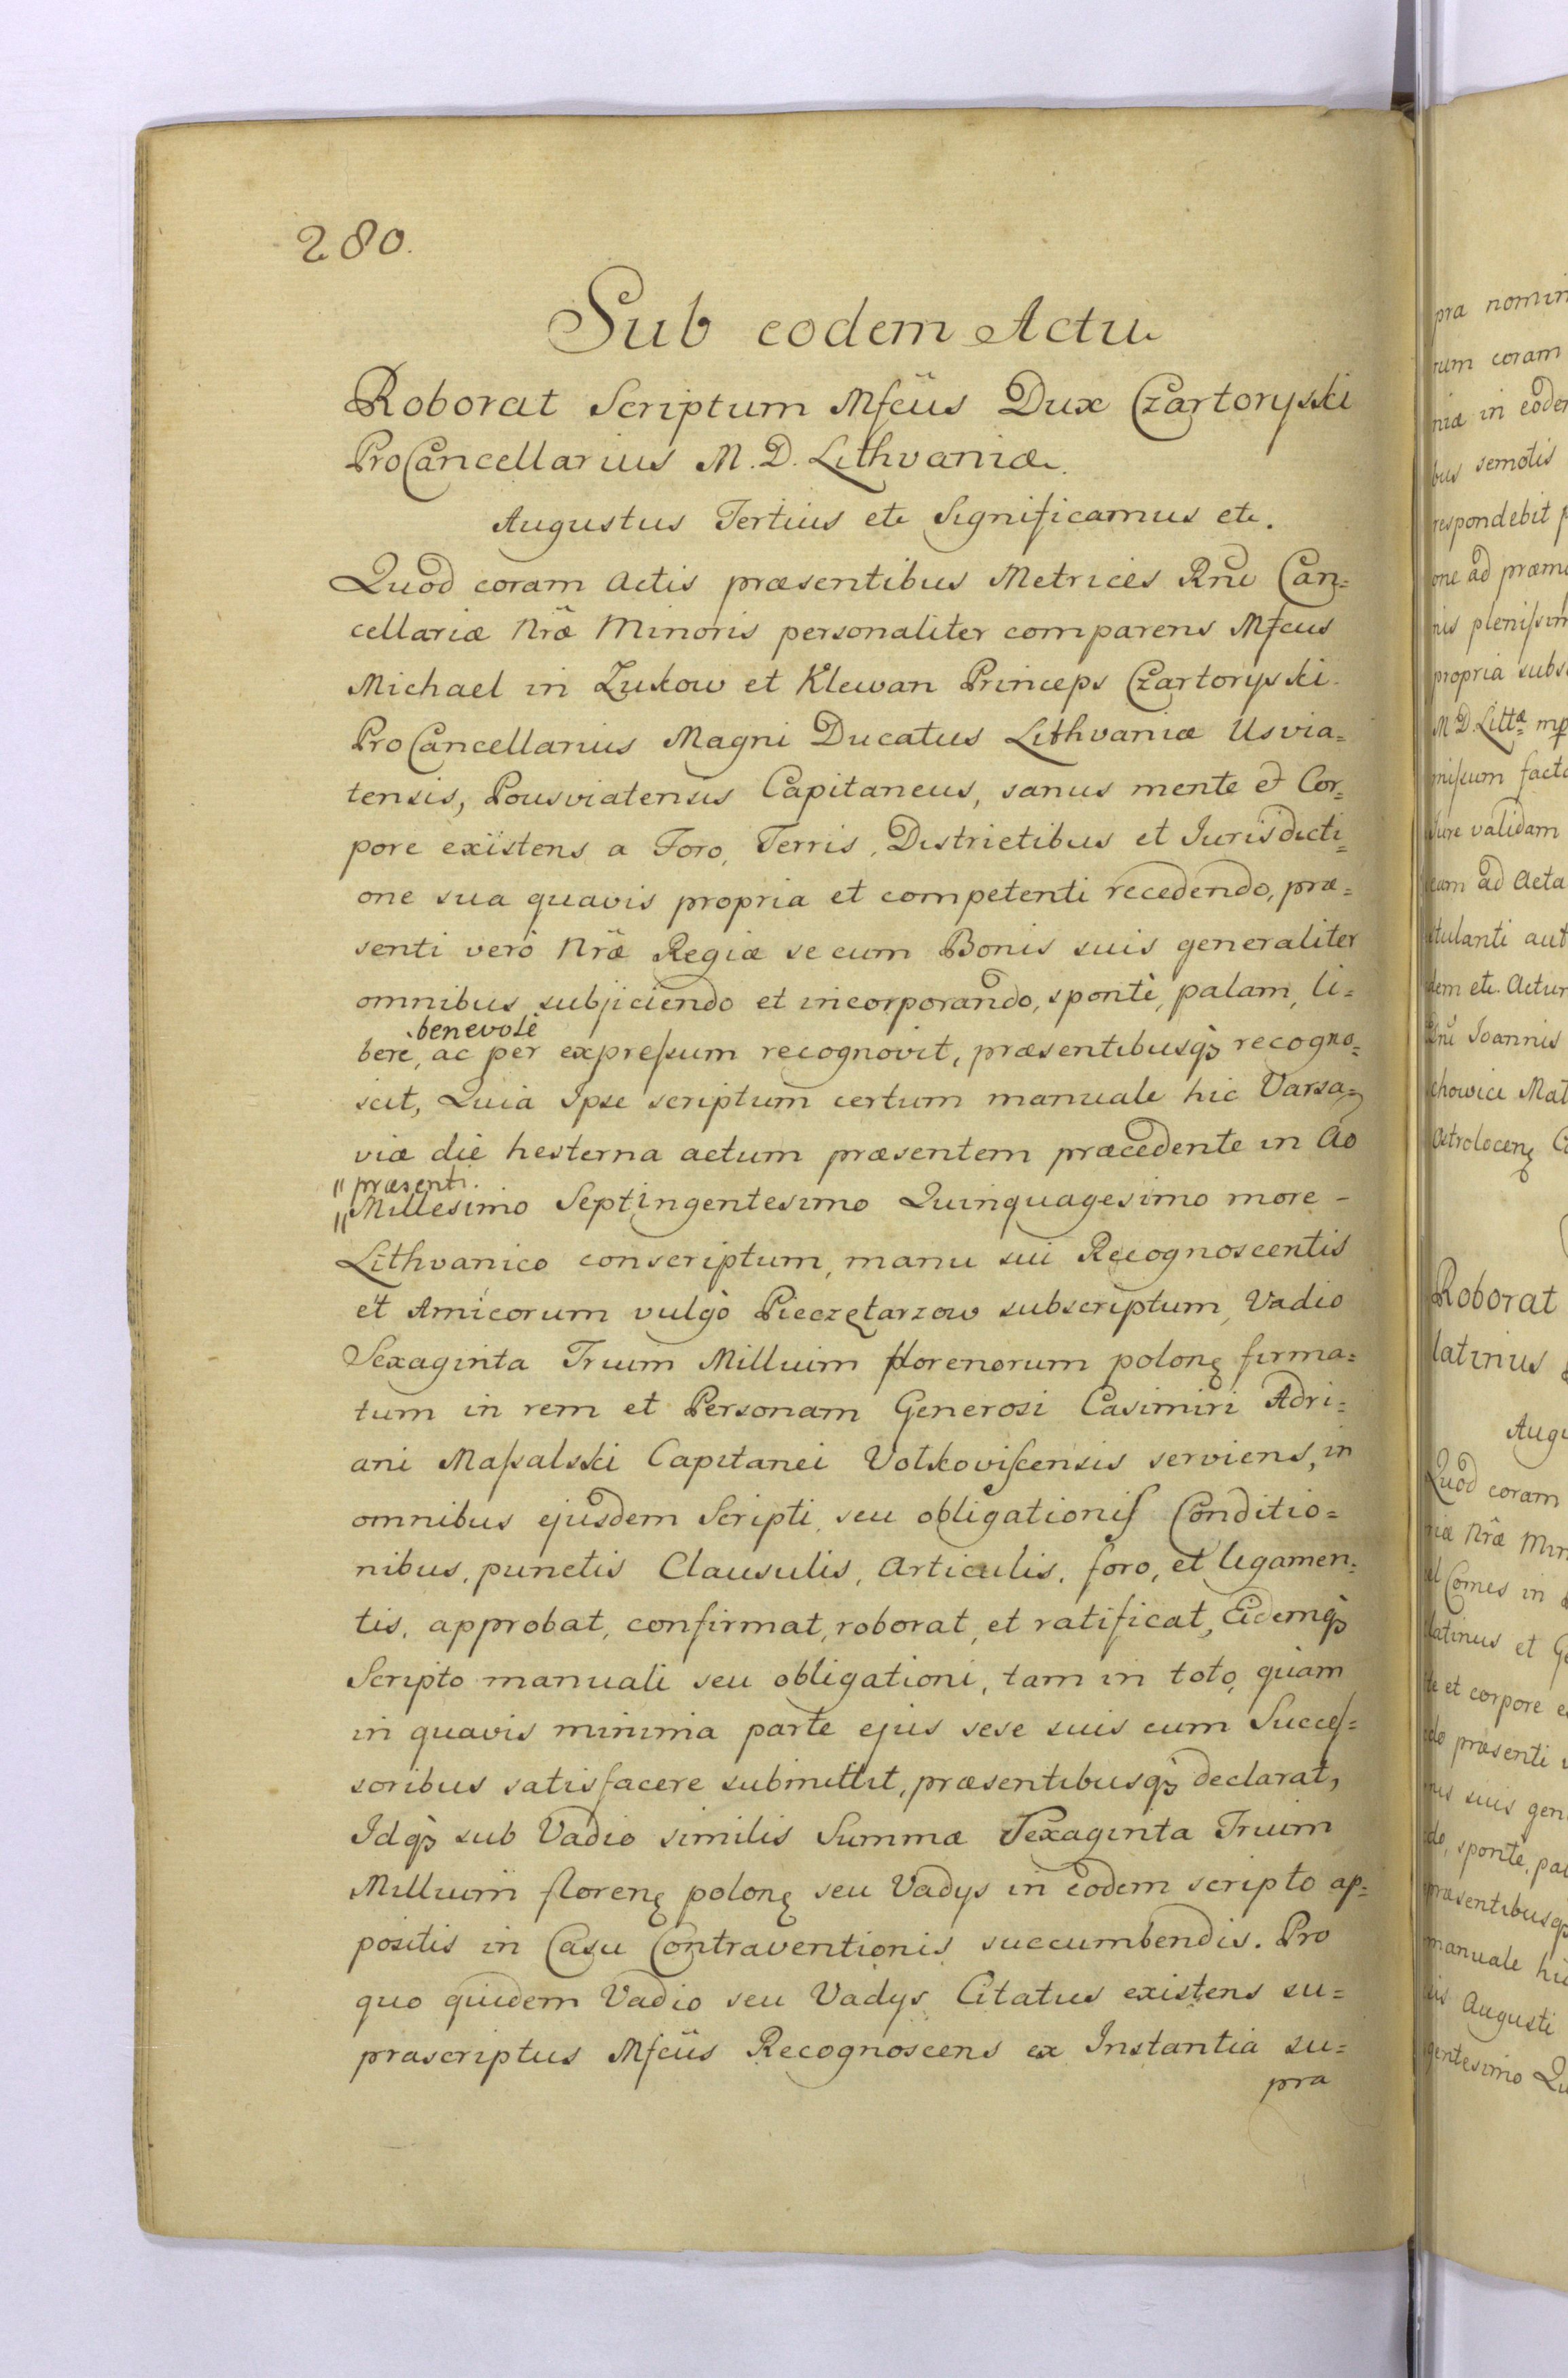 280.
Sub eodem Actu
Roborat Scriptum Mfcus Dux Czartoryski
ProCancellarius M. D. Lithvaniæ.
Augustus Tertius etc Significamus etc.
Quod coram Actis præsentibus Metrices Rni Can=
cellariæ Nræ Minoris personaliter comparens Mfcus
Michael in Zukow et Klewan Princeps Czartoryski.
ProCancellarius Magni Ducatus Lithvaniæ Usvia=
tensis, Pousviatensis Capitaneus, sanus mente et Cor=
pore existens a Foro, Terris, Districtibus et Jurisdicti=
one sua quavis propria et competenti recedendo, præ=
senti verò Nræ Regiæ se cum Bonis suis generaliter
omnibus subjiciendo et incorporando, spontè, palam, li=
benevolè
berè, ac per expressum recognovit, præsentibusq3 recogno=
scit, Quia Ipse scriptum certum manuale hic Varsa=
viæ die hesterna actum præsentem præcedente in Ao
" præsenti.
" Millesimo Septingentesimo Quinquagesimo more -
Lithvanico conscriptum, manu sui Recognoscentis
et Amicorum vulgò Pieczętarzow subscriptum, Vadio
Sexaginta Trium Millium florenorum polonę firma=
tum in rem et Personam Generosi Casimiri Adri=
ani Massalski Capitanei Volkoviscensis serviens, in
omnibus ejusdem Scripti, seu obligationis Conditio=
nibus, punctis Clausulis, Articulis, foro, et ligamen=
tis, approbat, confirmat, roborat, et ratificat, Eidemq3
Scripto manuali seu obligationi, tam in toto, quàm
in quavis minima parte ejus sese suis cum Succes=
soribus satisfacere submittit, præsentibusq3 declarat,
Idq3 sub Vadio similis Summæ Sexaginta Trium
Millium florenę polonę seu Vadys in eodem scripto ap=
positis in Casu Contraventionis succumbendis. Pro
quo quidem Vadio seu Vadys Citatus existens su=
prascriptus Mfcus Recognoscens ex Instantia su=
pra
pra nomin
rum coram
niæ in eoder
bus semotis
respondebit p
one ad præm
nis plenissim
propria subs
M D. Littæ mp
missum facto
Jure validam
eam ad Acta
tulanti aut
dem etc. Actum
Rni Joannis
chowice Mat
Roborat
latinus
Augu
Quod coram
iæ Nræ Min
Comes in
latinus et Ge
te et corpore e
do præsenti v
nis suis gen
do, spontè, pal
præsentibusq
manuale hic
sis Augusti
gentesimo Qu